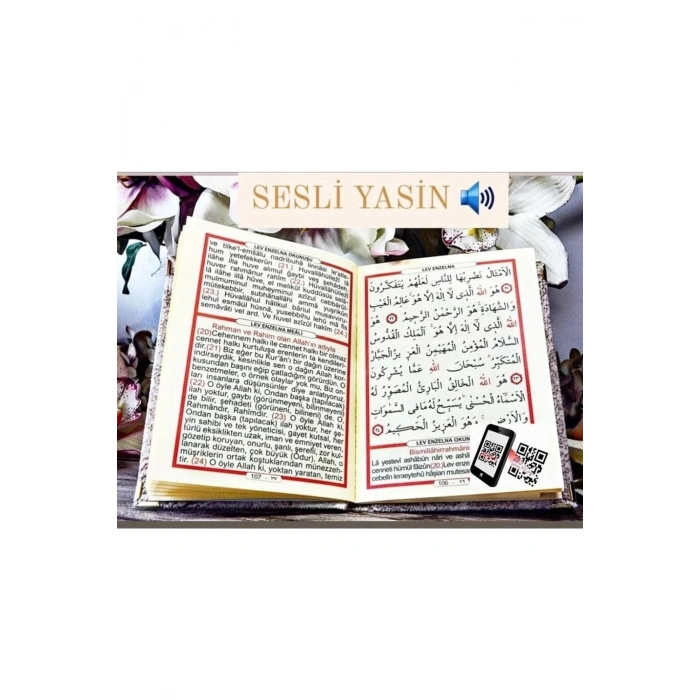 SESLİ YASİN
LEV ENZELNA OKUNUŞU
ve tilke'l-emsâlü nadribuhâ linnâsi le'alle-
hum yetefekkerûn (21.) Huvallâhüllezî lâ
ilâhe illa huve alimul ğaybi veş şehâdeh,
huver rahmânur rahîm (22.) Hüvallâhüllezî
lâ ilâhe illâ hüve, el melikül kuddûsüs selâmül
mulmuminul muheyminul azîzul cebbârul-
mütekebbir, subhânallâhi ammâ yuşrikûn
(23.) Hüvallâhül hâlikul bâriul musavviru-
lehul esmâül hüsnâ, yusebbihu lehû mâ fis
semâvâti vel ard. Ve huvel azîzül hakîm (24.)
LEV ENZELNA MEÂLİ
Rahman ve Rahim olan Allah'ın adıyla
(20)Cehennem halkı ile cennet halkı bir olmaz
cennet halkı kurtuluşa erenlerin ta kendileri-
dir.(21) Biz eğer bu Kur'ân'ı bir dağın üzerine
indirseydik, kesinlikle sen o dağın Allah kor-
kusundan başını eğip çatladığını görürdün. O
benzetmeler, o örnek olaylar yok mu, Biz on-
ları insanlara düşünsünler diye anlatıyoruz.
(22) O öyle Allah ki, Ondan başka (tapılacak)
ilah yoktur, gaybı (görünmeyeni, bilinmeyeni)
de bilir, şehadeti (görüneni, bilineni) de. O,
Rahmândır, Rahîmdir. (23) O öyle Allah ki,
Ondan başka (tapılacak) ilah yoktur, her şe-
yin sahibi ve tek yöneticisi, gayet kutsal, her
türlü eksiklikten uzak, iman ve emniyet veren,
gözetip koruyan, onurlu, şanlı, şerefli, zor kul-
lanarak düzelten, çok büyük (Odur). Allah, o
müşriklerin ortak koştuklarından münezzeh-
tir. (24) O öyle Allah ki, yoktan yaratan, temiz
107 - ٧٧
LEV ENZELNA
الْاَمْثَالُ نَضْرِبُهَا لِلنَّاسِ لَعَلَّهُمْ يَتَفَكَّرُونَ
هُوَ اللّٰهُ الَّذِى لَا اِلٰهَ اِلَّا هُوَ عَالِمُ الْغَيْبِ
وَالشَّهَادَةِ هُوَ الرَّحْمٰنُ الرَّحِيمُ هُوَ
اللّٰهُ الَّذِى لَا اِلٰهَ اِلَّا هُوَ اَلْمَلِكُ الْقُدُّوسُ
السَّلَامُ الْمُؤْمِنُ الْمُهَيْمِنُ الْعَزِيزُ الْجَبَّارُ
الْمُتَكَبِّرُ سُبْحَانَ اللّٰهِ عَمَّا يُشْرِكُونَ
هُوَ اللّٰهُ الْخَالِقُ الْبَارِئُ الْمُصَوِّرُ لَهُ
الْاَسْمَاءُ الْحُسْنٰى يُسَبِّحُ لَهُ مَا فِى السَّمٰوَاتِ
وَالْاَرْضِ وَهُوَ الْعَزِيزُ الْحَكِيمُ
LEV ENZELNA OKUN
Bismillâhirrahmâni
Lâ yestevî ashâbün nâri ve ashâ
cenneti hümül fâizûn(20.)Lev enze
cebelin leraeytehû hâşian mutesa
106 - ٧٦